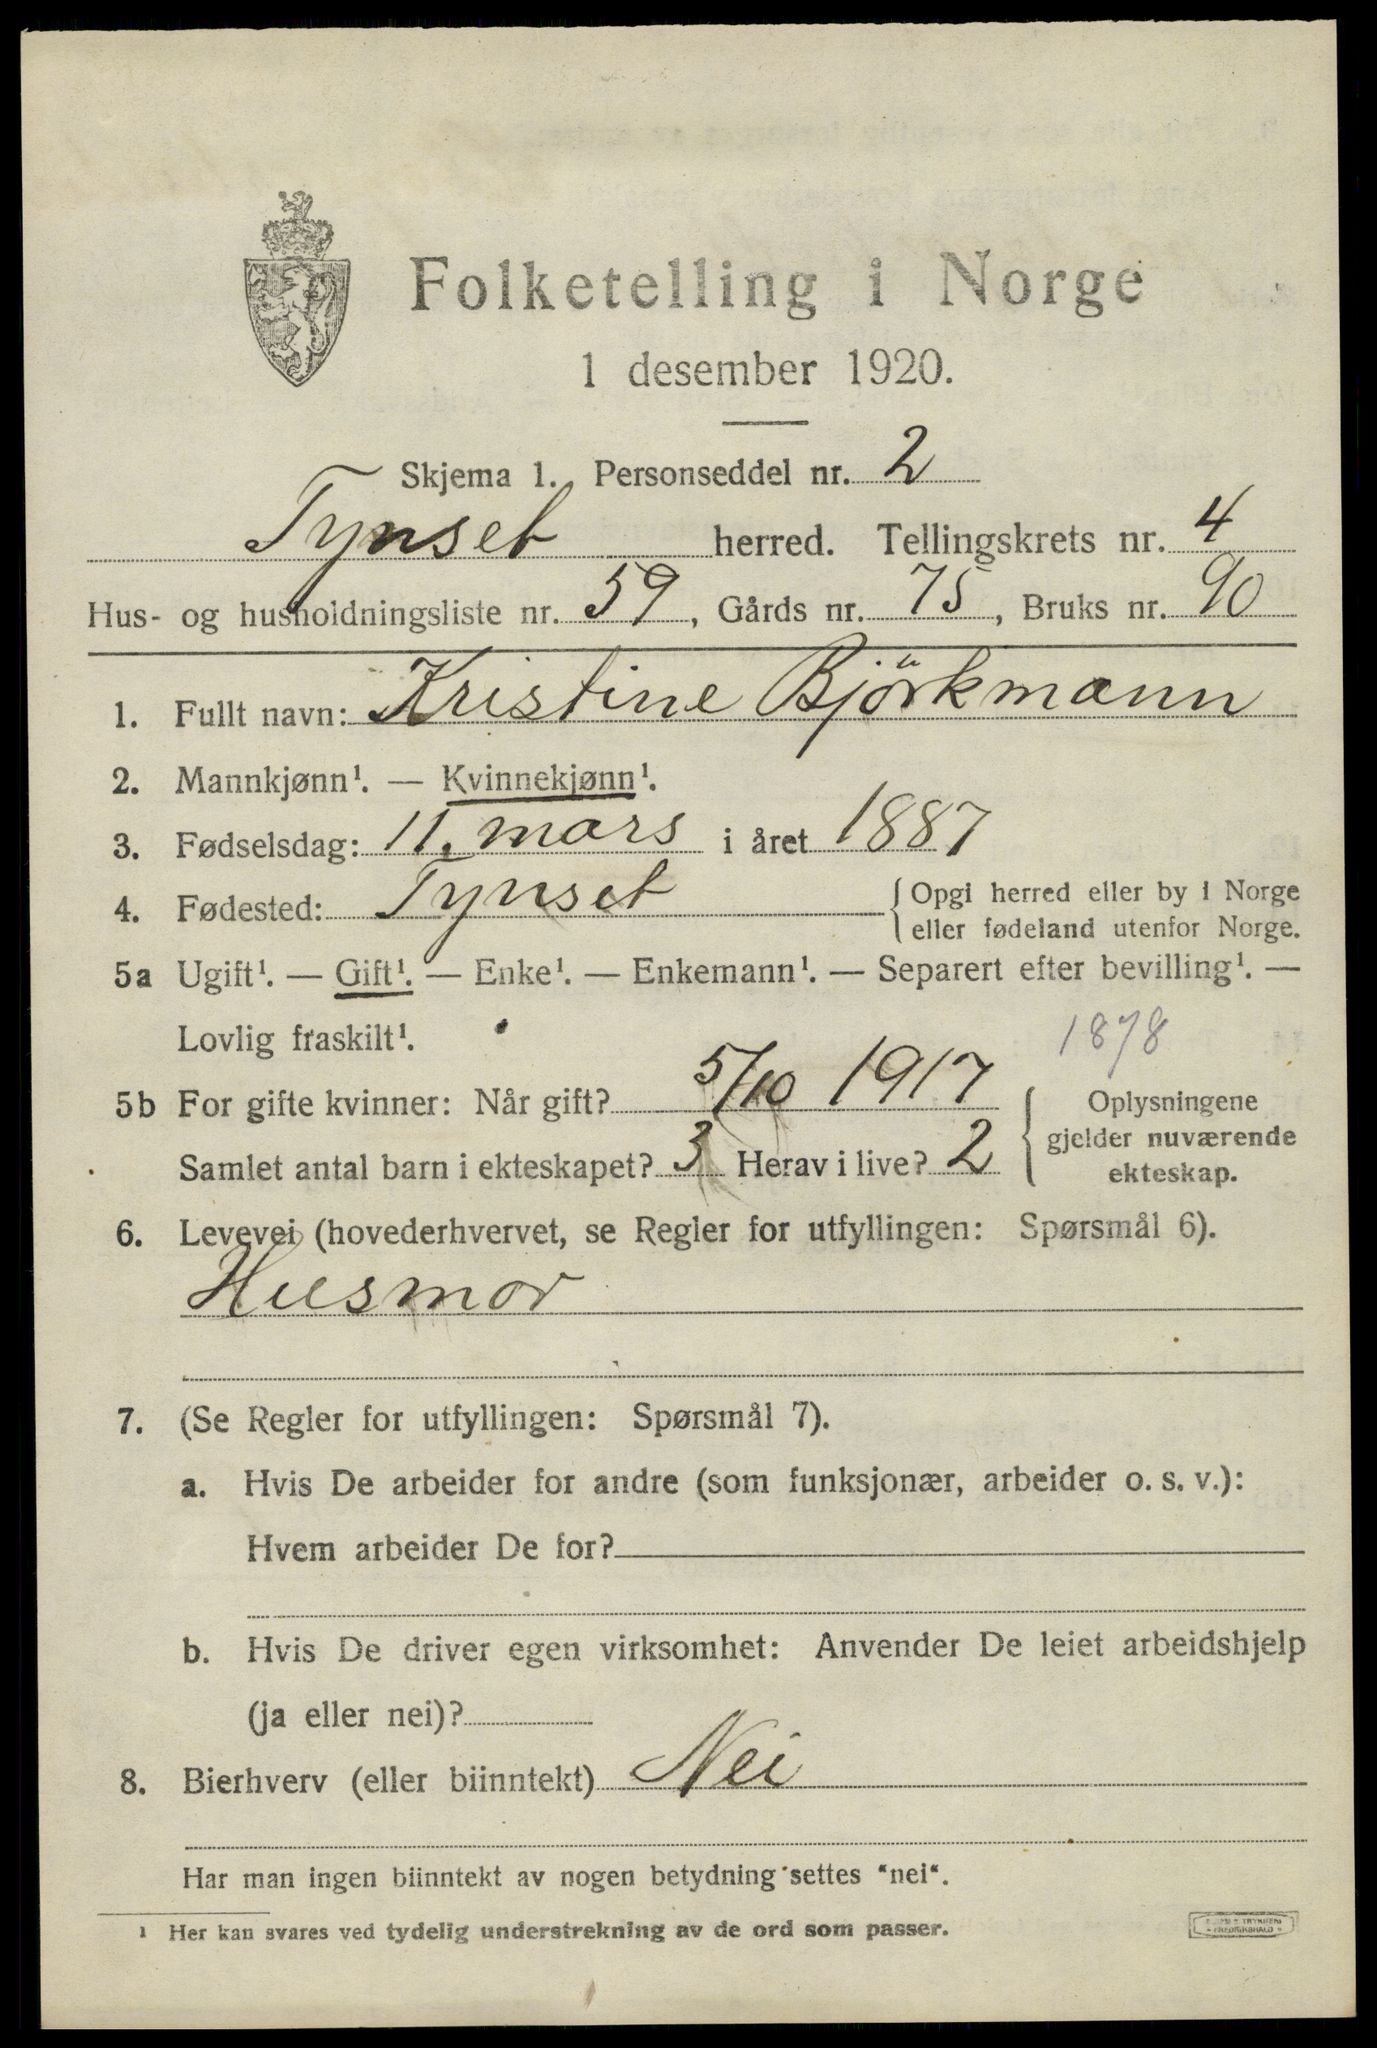 Folketelling i Norge
1 desember 1920.
Skjema 1. Personseddel nr. 2
Tynset herred. Tellingskrets nr. 4
Hus- og husholdningsliste nr. 59, Gårds nr. 75, Bruks nr. 90
1. Fullt navn: Kristine Björkmann
2. Mannkjønn¹. — Kvinnekjønn¹.
3. Fødselsdag: 11. mars i året 1887
4. Fødested: Tynset { Opgi herred eller by i Norge
eller fødeland utenfor Norge.
5a Ugift¹. — Gift¹. — Enke¹. — Enkemann¹. — Separert efter bevilling¹. —
Lovlig fraskilt¹. 1878
5b For gifte kvinner: Når gift? 5/10 1917 { Oplysningene
gjelder nuværende
Samlet antal barn i ekteskapet? 3 Herav i live? 2 ekteskap.
6. Levevei (hovederhvervet, se Regler for utfyllingen: Spørsmål 6).
Husmor
7. (Se Regler for utfyllingen: Spørsmål 7).
a. Hvis De arbeider for andre (som funksjonær, arbeider o. s. v.):
Hvem arbeider De for?
b. Hvis De driver egen virksomhet: Anvender De leiet arbeidshjelp
(ja eller nei)?
8. Bierhverv (eller biinntekt) Nei
Har man ingen biinntekt av nogen betydning settes "nei".
¹ Her kan svares ved tydelig understrekning av de ord som passer.